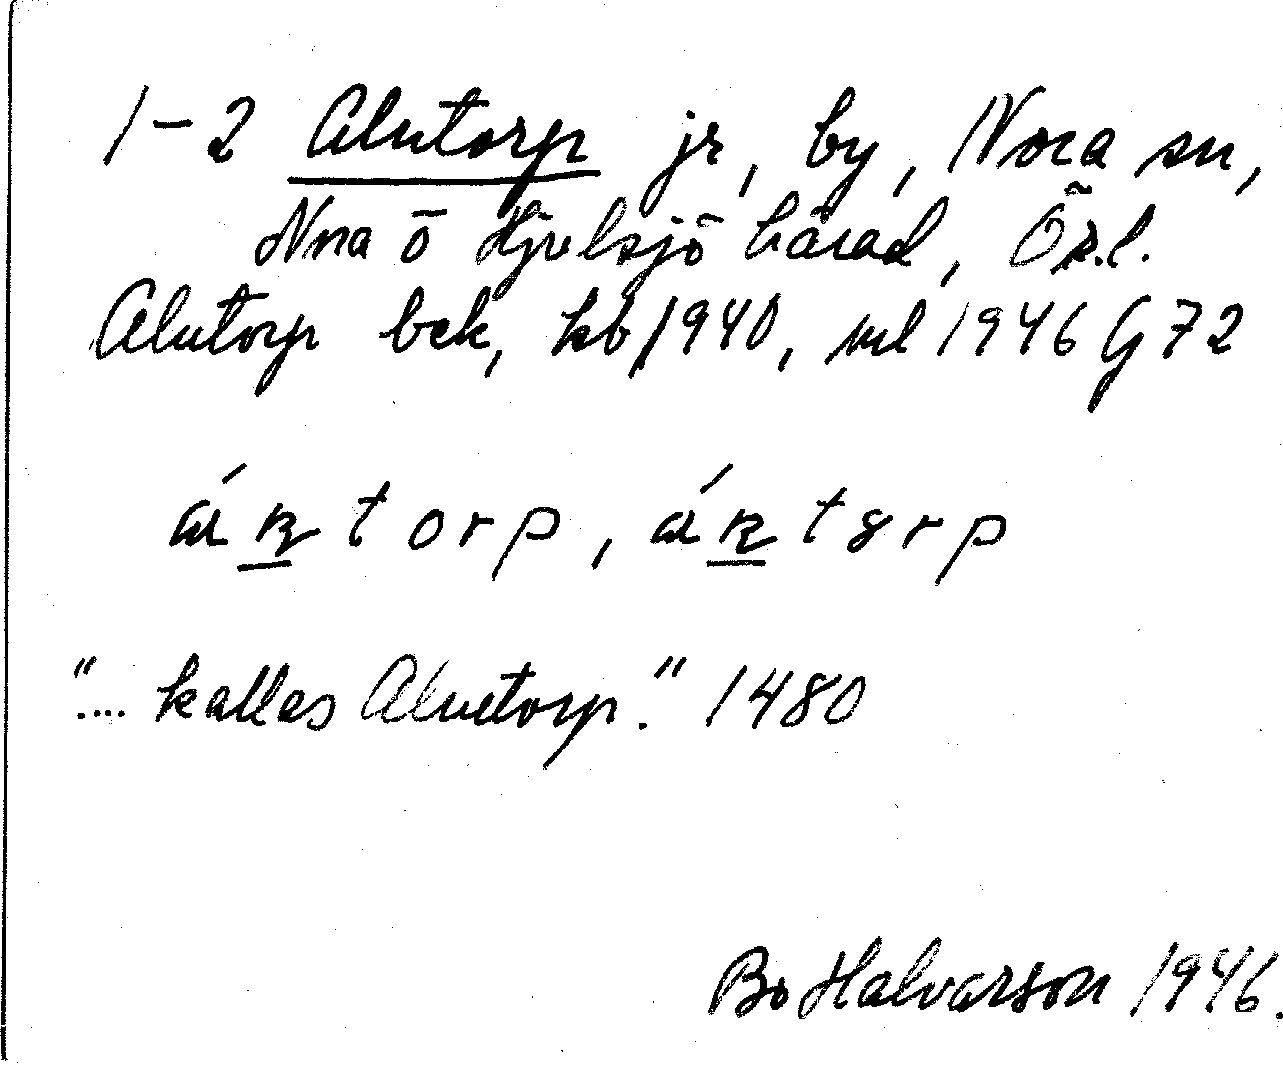 1-2 Alntorp jr, by, Nora sn,
Nora o Hjulsjö härad, Ör.l.
Alntorp bck, kb 1940, ml 1946 G 72
torp, t rp
"... kallas Alnetorp." 1480
Bo Halvarson 1946.